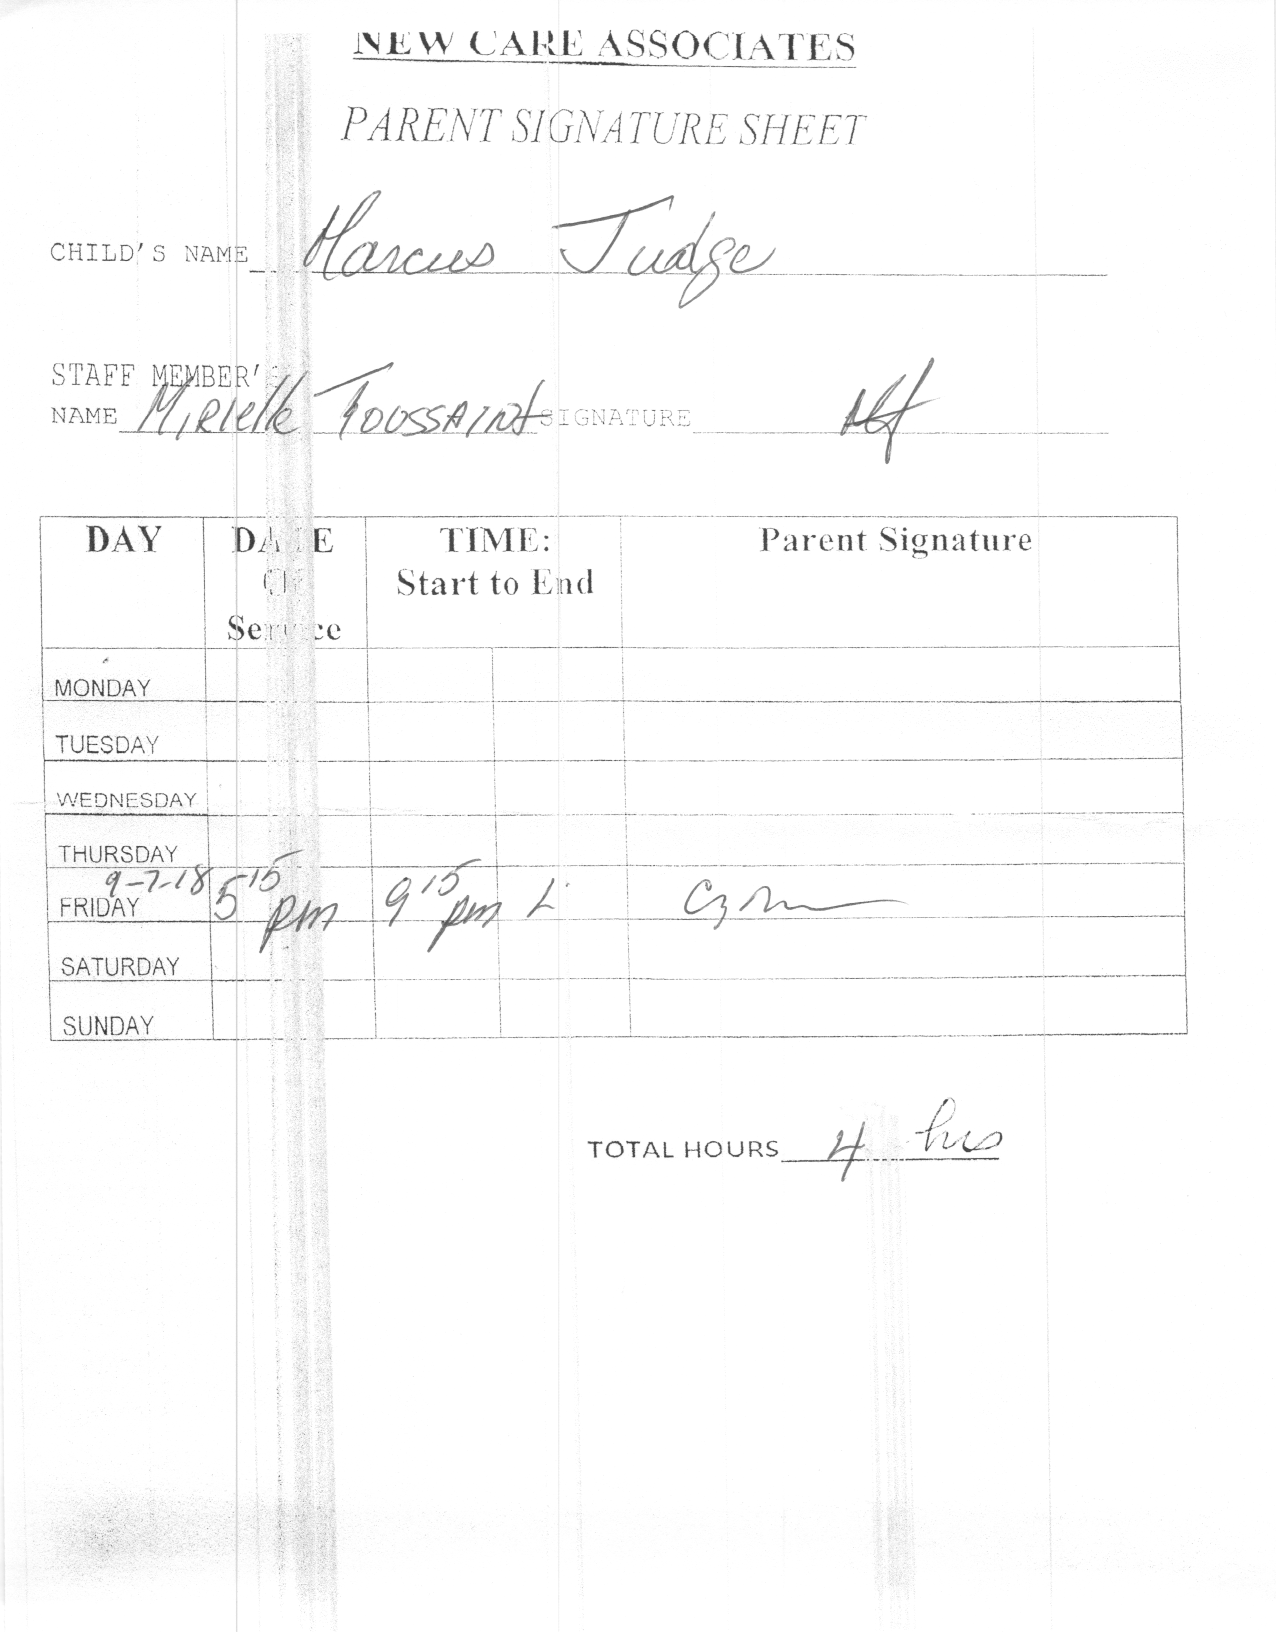 NEW CARE ASSOCIATES
PARENT SIGNATURE SHEET
CHILD'S NAME Marcus Judge
STAFF MEMBER'S
NAME Mirielle Toussaint SIGNATURE
DAY DATE TIME: Parent Signature
Of Start to End
Service
MONDAY
TUESDAY
WEDNESDAY
THURSDAY
9-7-18
FRIDAY 5 15 pm 9 15 pm
SATURDAY
SUNDAY
TOTAL HOURS 4 hrs